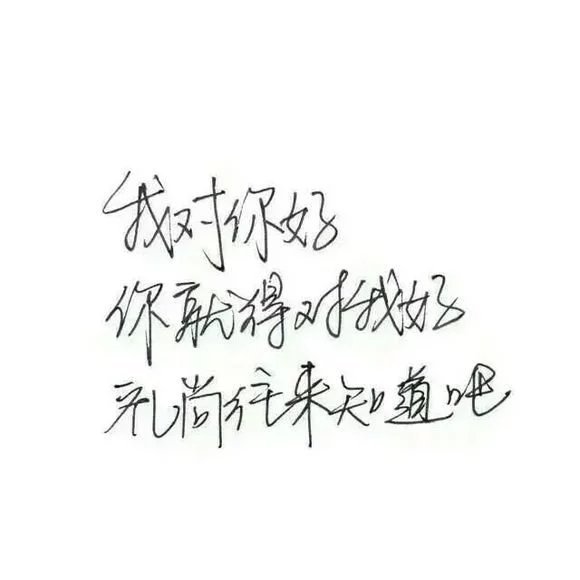 我对你好
你就得对我好
礼尚往来知道吧